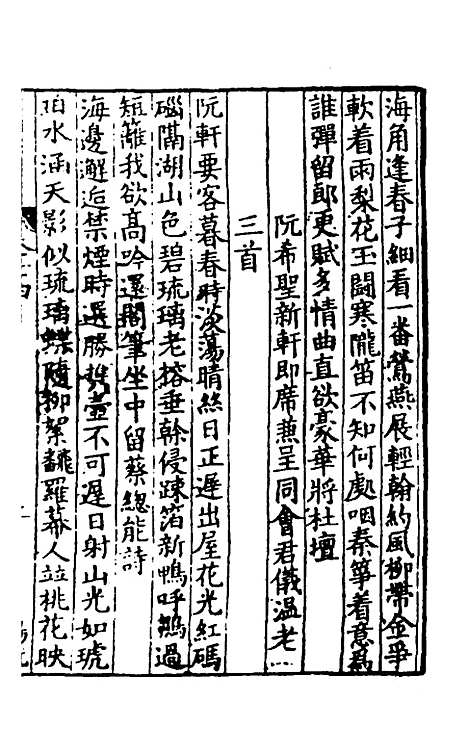 海角逢春子細看一番鶯燕展輕翰約風柳帶金爭
軟着雨梨花玉鬪寒隴笛不知何處咽秦箏着意為
誰彈留郎更賦多情曲直欲豪華將杜壇
阮希聖新軒即席兼呈同會君儀温老
三首
阮軒要客暮春時淡蕩晴絲日正遲出屋花光紅碼
碯隔湖山色碧琉璃老榕垂榦侵踈箔新鴨呼鶵過
短籬我欲高吟還閣筆坐中留蔡總能詩
海邊邂逅禁煙時選勝携壺不可遲日射山光如琥
珀水涵天影似琉璃蝶隨柳絮飜羅幕人並桃花映